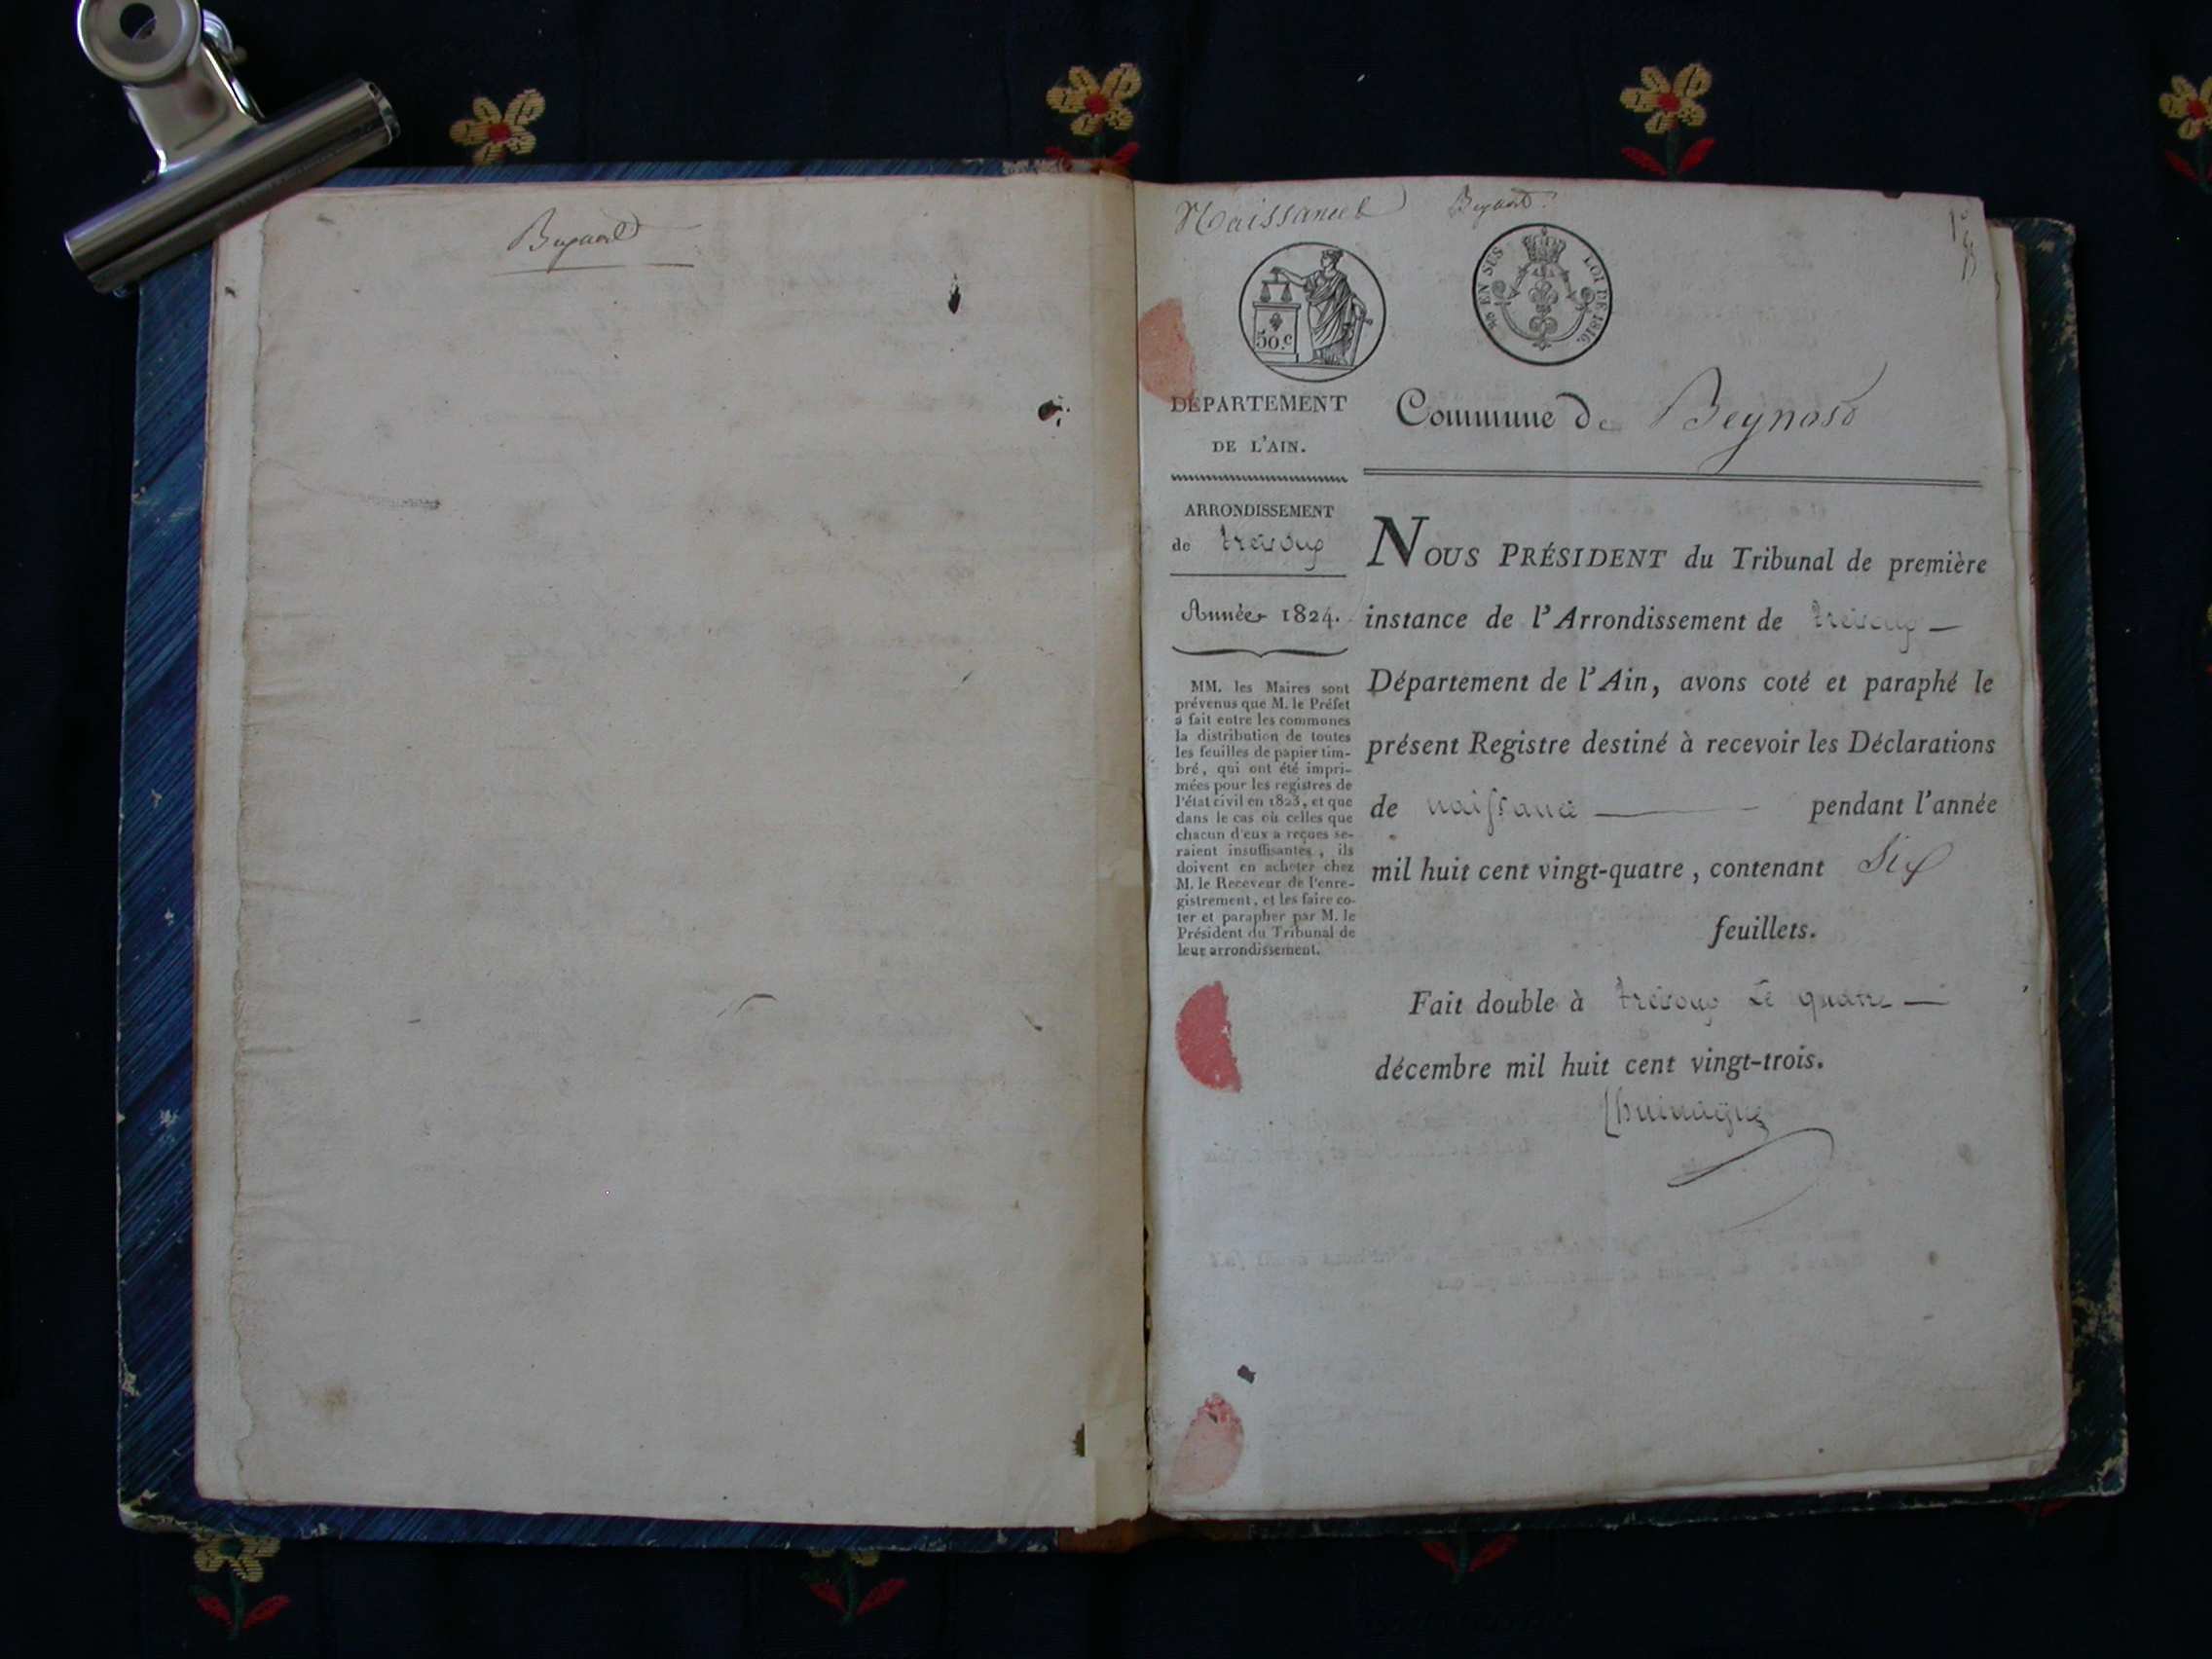 Beynost
Naissances Beynost
1er
50.c
25 EN SUS LOI DE 1816.
DÉPARTEMENT
DE L'AIN.
ARRONDISSEMENT
de trévoux
Année 1824.
MM. les Maires sont
prévenus que M. le Préfet
a fait entre les communes
la distribution de toutes
les feuilles de papier tim-
bré, qui ont été impri-
mées pour les registres de
l'état civil en 1823, et que
dans le cas où celles que
chacun d'eux a reçues se-
raient insuffisantes, ils
doivent en acheter chez
M. le Receveur de l'enre-
gistrement, et les faire co-
ter et parapher par M. le
Président du Tribunal de
leur arrondissement.
Commune de Beynost
NOUS PRÉSIDENT du Tribunal de première
instance de l'Arrondissement de trévoux —
Département de l'Ain, avons coté et paraphé le
présent Registre destiné à recevoir les Déclarations
de naissance — pendant l'année
mil huit cent vingt-quatre, contenant Six
feuillets.
Fait double à trévoux Le quatre —
décembre mil huit cent vingt-trois.